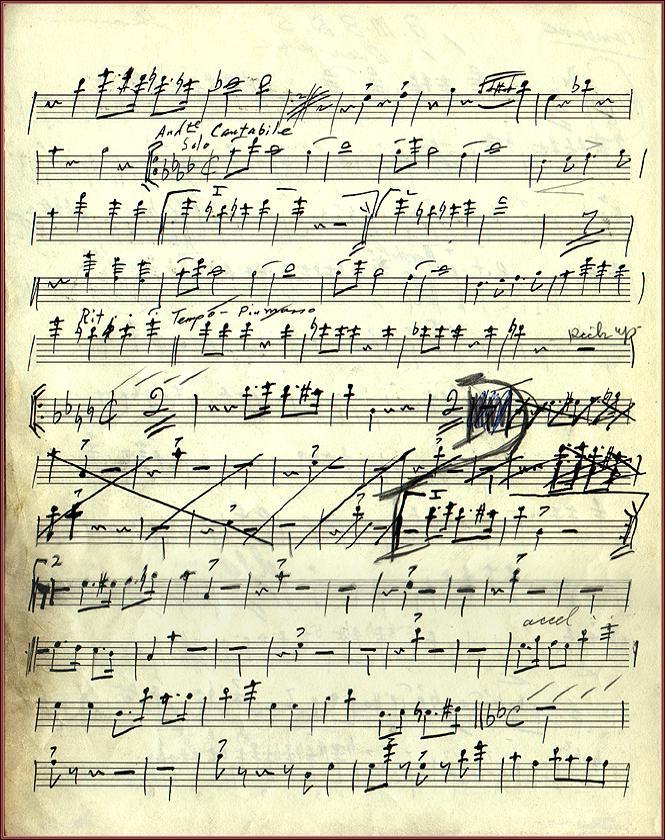 Andte Cantabile
Solo
I
2
7
Rit. . . . Tempo - Piu mosso
Pick up
2
2
I
2
accel